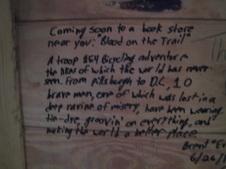 Coming soon to a book store
near you: "Blood on the Trail"
A troop 864 Bicycling adventure
the likes of which the world has never
seen. From pittsburgh to D.C., 10
brave men, one of which was lost in a
deep ravine of misery, have been wearing
tie-dye, groovin' on everything, and
making the world a better place
Brent "Er
6/26/1